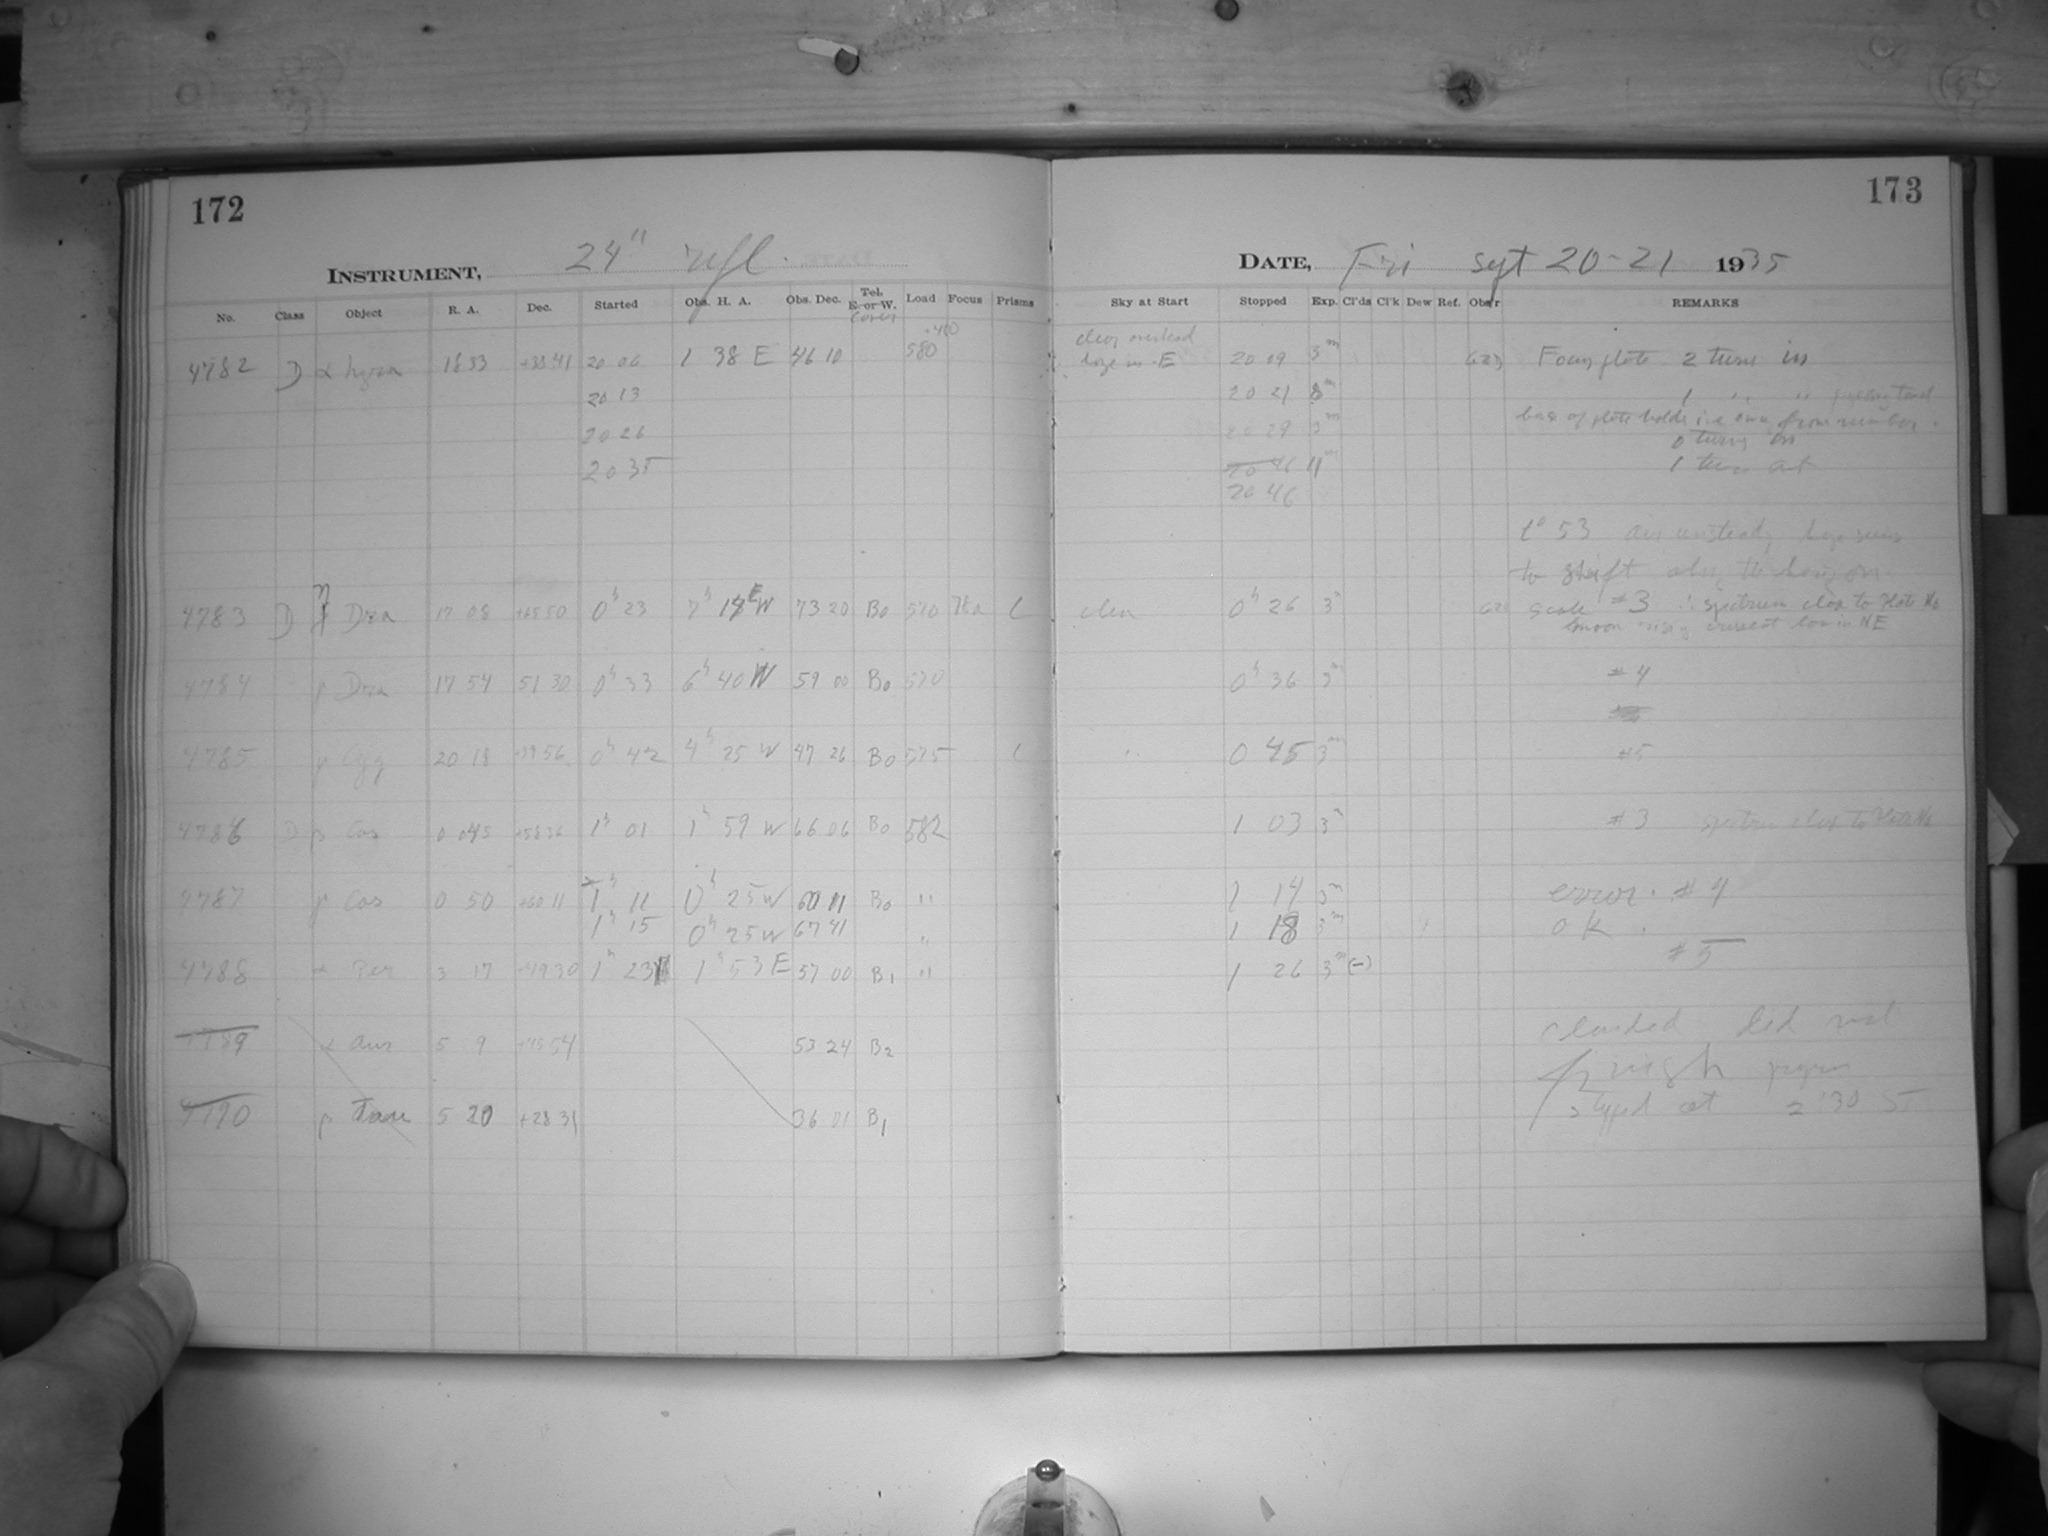 172
INSTRUMENT, 24" refl.
No. Class Object R. A. Dec. Started Obs. H. A. Obs. Dec. Tel. E. or W. Cover Load Focus Prisms
4782 D α Lyrae 18 33 +38 41 20 06 1 38 E 46 10 580
20 13
20 26
20 35
4783 D η Dra 17 08 +65 50 0h 23 7h 18 W 73 20 B0 570
4784 γ Dra 17 54 51 30 0h 33 6h 40 W 59 00 B0 570
4785 γ Cyg 20 18 +39 56 0h 42 4h 25 W 47 26 B0 575
4786 D Cas 0 04 5 +58 36 1h 01 1h 59 W 66 06 B0 582
4787 γ Cas 0 50 +60 11 1h 11 0h 25 W 60 11 B0 "
1h 15 0h 25 W 67 41 "
4788 α Per 3 17 +49 30 1h 23 1h 53 E 57 00 B1 "
4789 α Aur 5 9 +45 54 53 24 B2
4790 Tau 5 20 +28 31 36 01 B1
173
DATE, Fri Sept 20-21 1935
Sky at Start Stopped Exp. Cl'ds Cl'k Dew Ref. Obs'r REMARKS
clear overhead
haze in E 20 09 3m Focus plate 2 turns in
20 21 8m 1 " "
20 29 3m base of plate holder i.e. away from number.
0 turns in
20 46 11m 1 turn out
20 46
t° 53 air unsteady haze seems
to shift along the horizon
clear 0h 26 3m scale #3 ∴ spectrum close to Plate No
moon rising crescent low in NE
0h 36 3m #4
" 0 45 3m #5
1 03 3m #3 spectrum close to Plate No
1 14 3m error. #4
1 18 3m ok.
#5
1 26 3m (-)
clouded did not
finish program
stopped at 2:30 ST